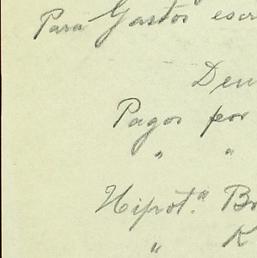 Para Gastos escr
Den
Pagos por
" "
Hipot.ª Bo
" K